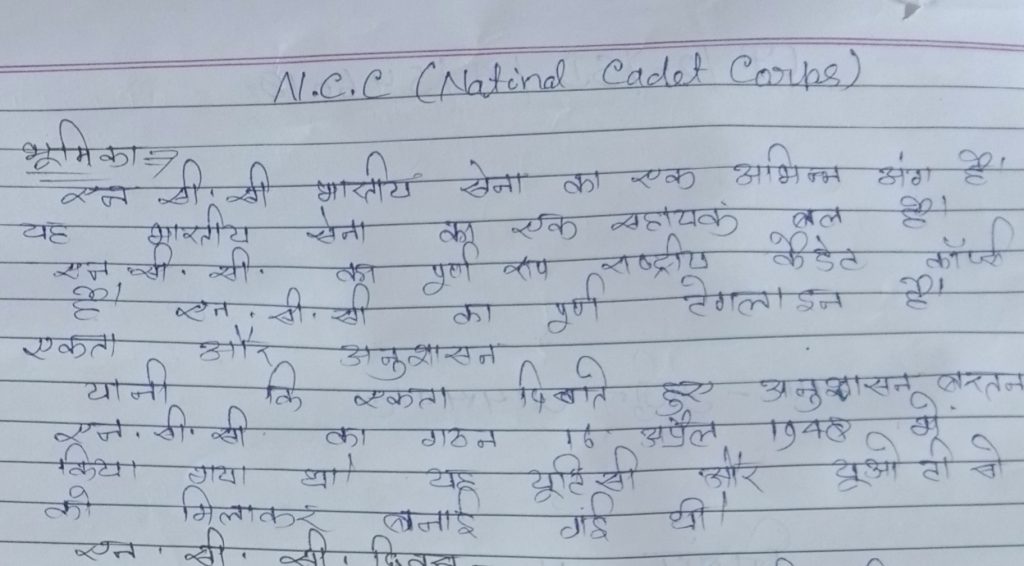 N.C.C (Natinal Cadet Corps)
भूमिका ⇒
एन सी. सी भारतीय सेना का एक अभिन्न अंग है।
यह भारतीय सेना का एक सहायक बल है।
एन. सी. सी. का पूर्ण रूप राष्ट्रीय कैडेट कॉर्प्स
है। एन. सी. सी का पूर्ण टेगलाइन है।
एकता और अनुशासन
यानी कि एकता दिखाते हुए अनुशासन बरतन
एन. सी. सी. का गठन 16 अप्रैल 1948 में
किया गया था। यह यूटिसी और यूओटीसी
को मिलाकर बनाई गई थी।
एन. सी. सी. दिवस